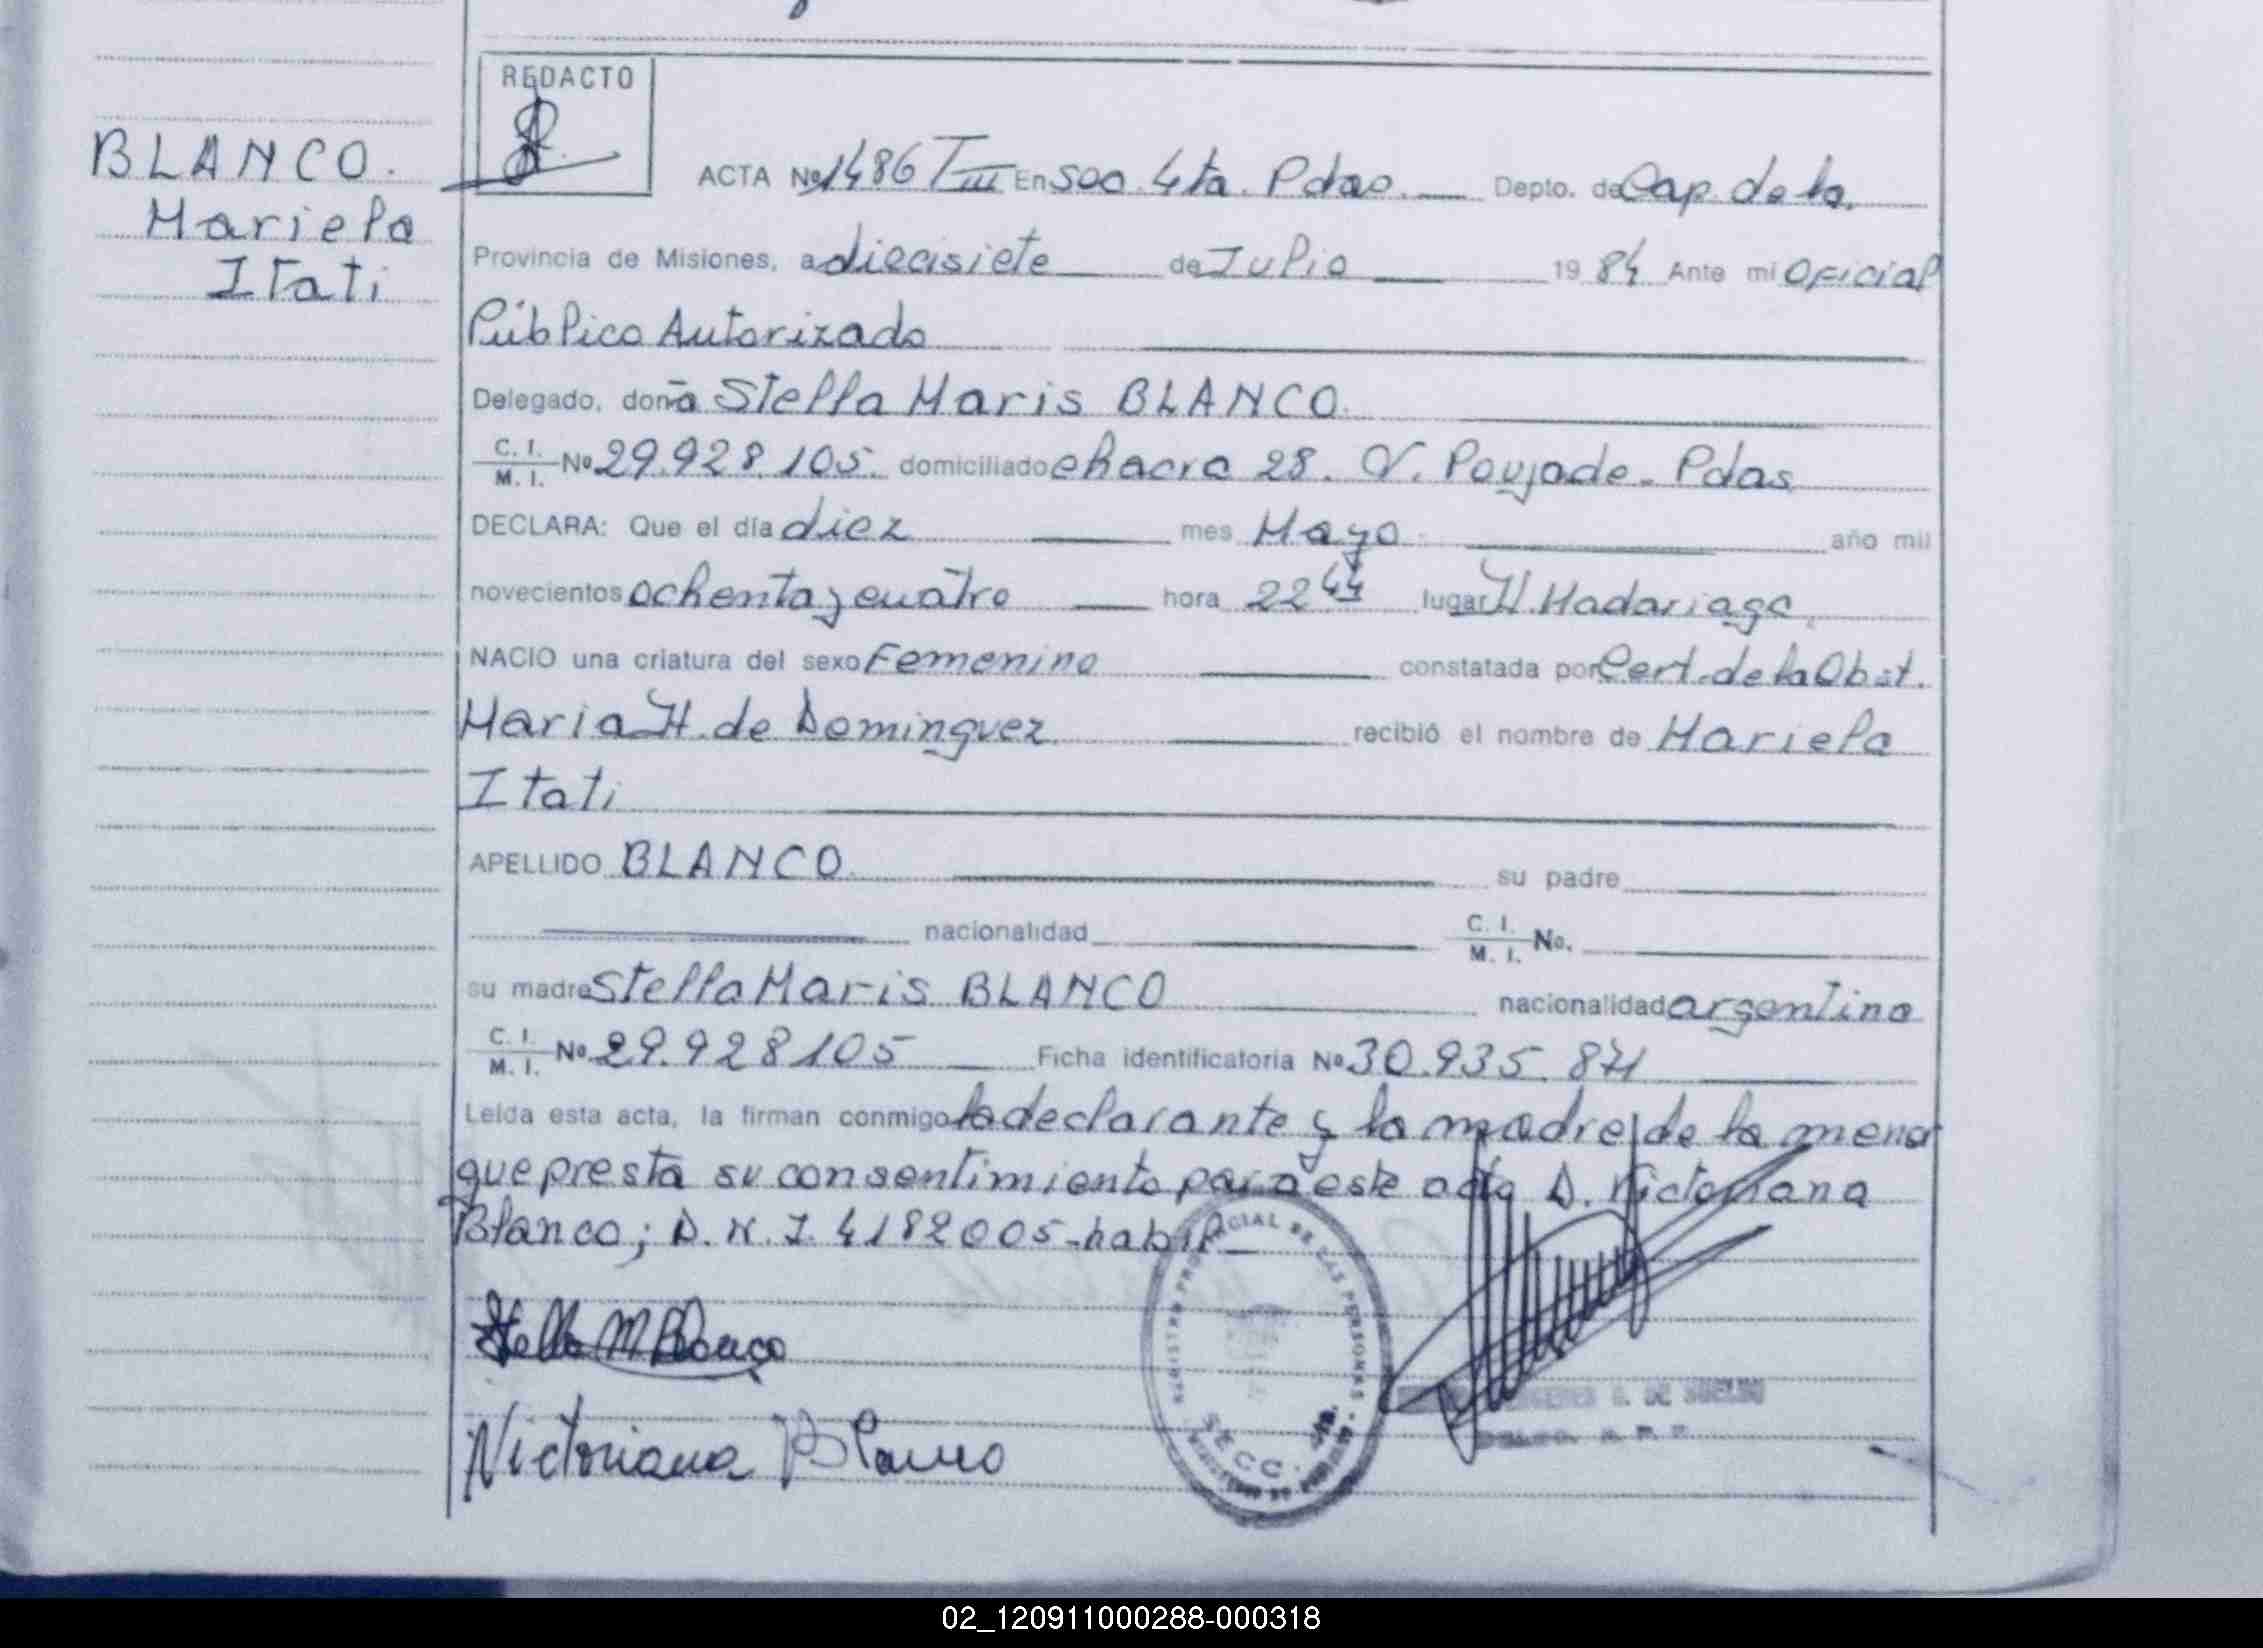 REDACTO
BLANCO.
Mariela
Itati
ACTA Nº 1486 TIII En Sec. 4ta. Pdas. Depto. de Cap. de la.
Provincia de Misiones, a diecisiete de Julio 19 84 Ante mi Oficial
Público Autorizado
Delegado, doña Stella Maris BLANCO.
C. I. M. I. Nº 29.928.105. domiciliado chacra 28. V. Poujade - Pdas
DECLARA: Que el día diez mes Mayo año mil
novecientos ochenta y cuatro hora 22 44 lugar H. Madariaga
NACIO una criatura del sexo Femenino constatada por Cert. de la Obst.
Maria H. de Dominguez recibió el nombre de Mariela
Itati
APELLIDO BLANCO. su padre
nacionalidad C. I. M. I. No.
su madre Stella Maris BLANCO nacionalidad argentina
C. I. M. I. No. 29.928105 Ficha identificatoria Nº 30.935.871
Leída esta acta, la firman conmigo la declarante y la madre de la menor
que presta su consentimiento para este acto D. Victoriana
Blanco; D.N.I. 4182005-habil
Stella M Blanco
Victoriana Blanco
REGISTRO PROVINCIAL DE LAS PERSONAS
SECC. 4ta.
DE SUELDO
02_120911000288-000318